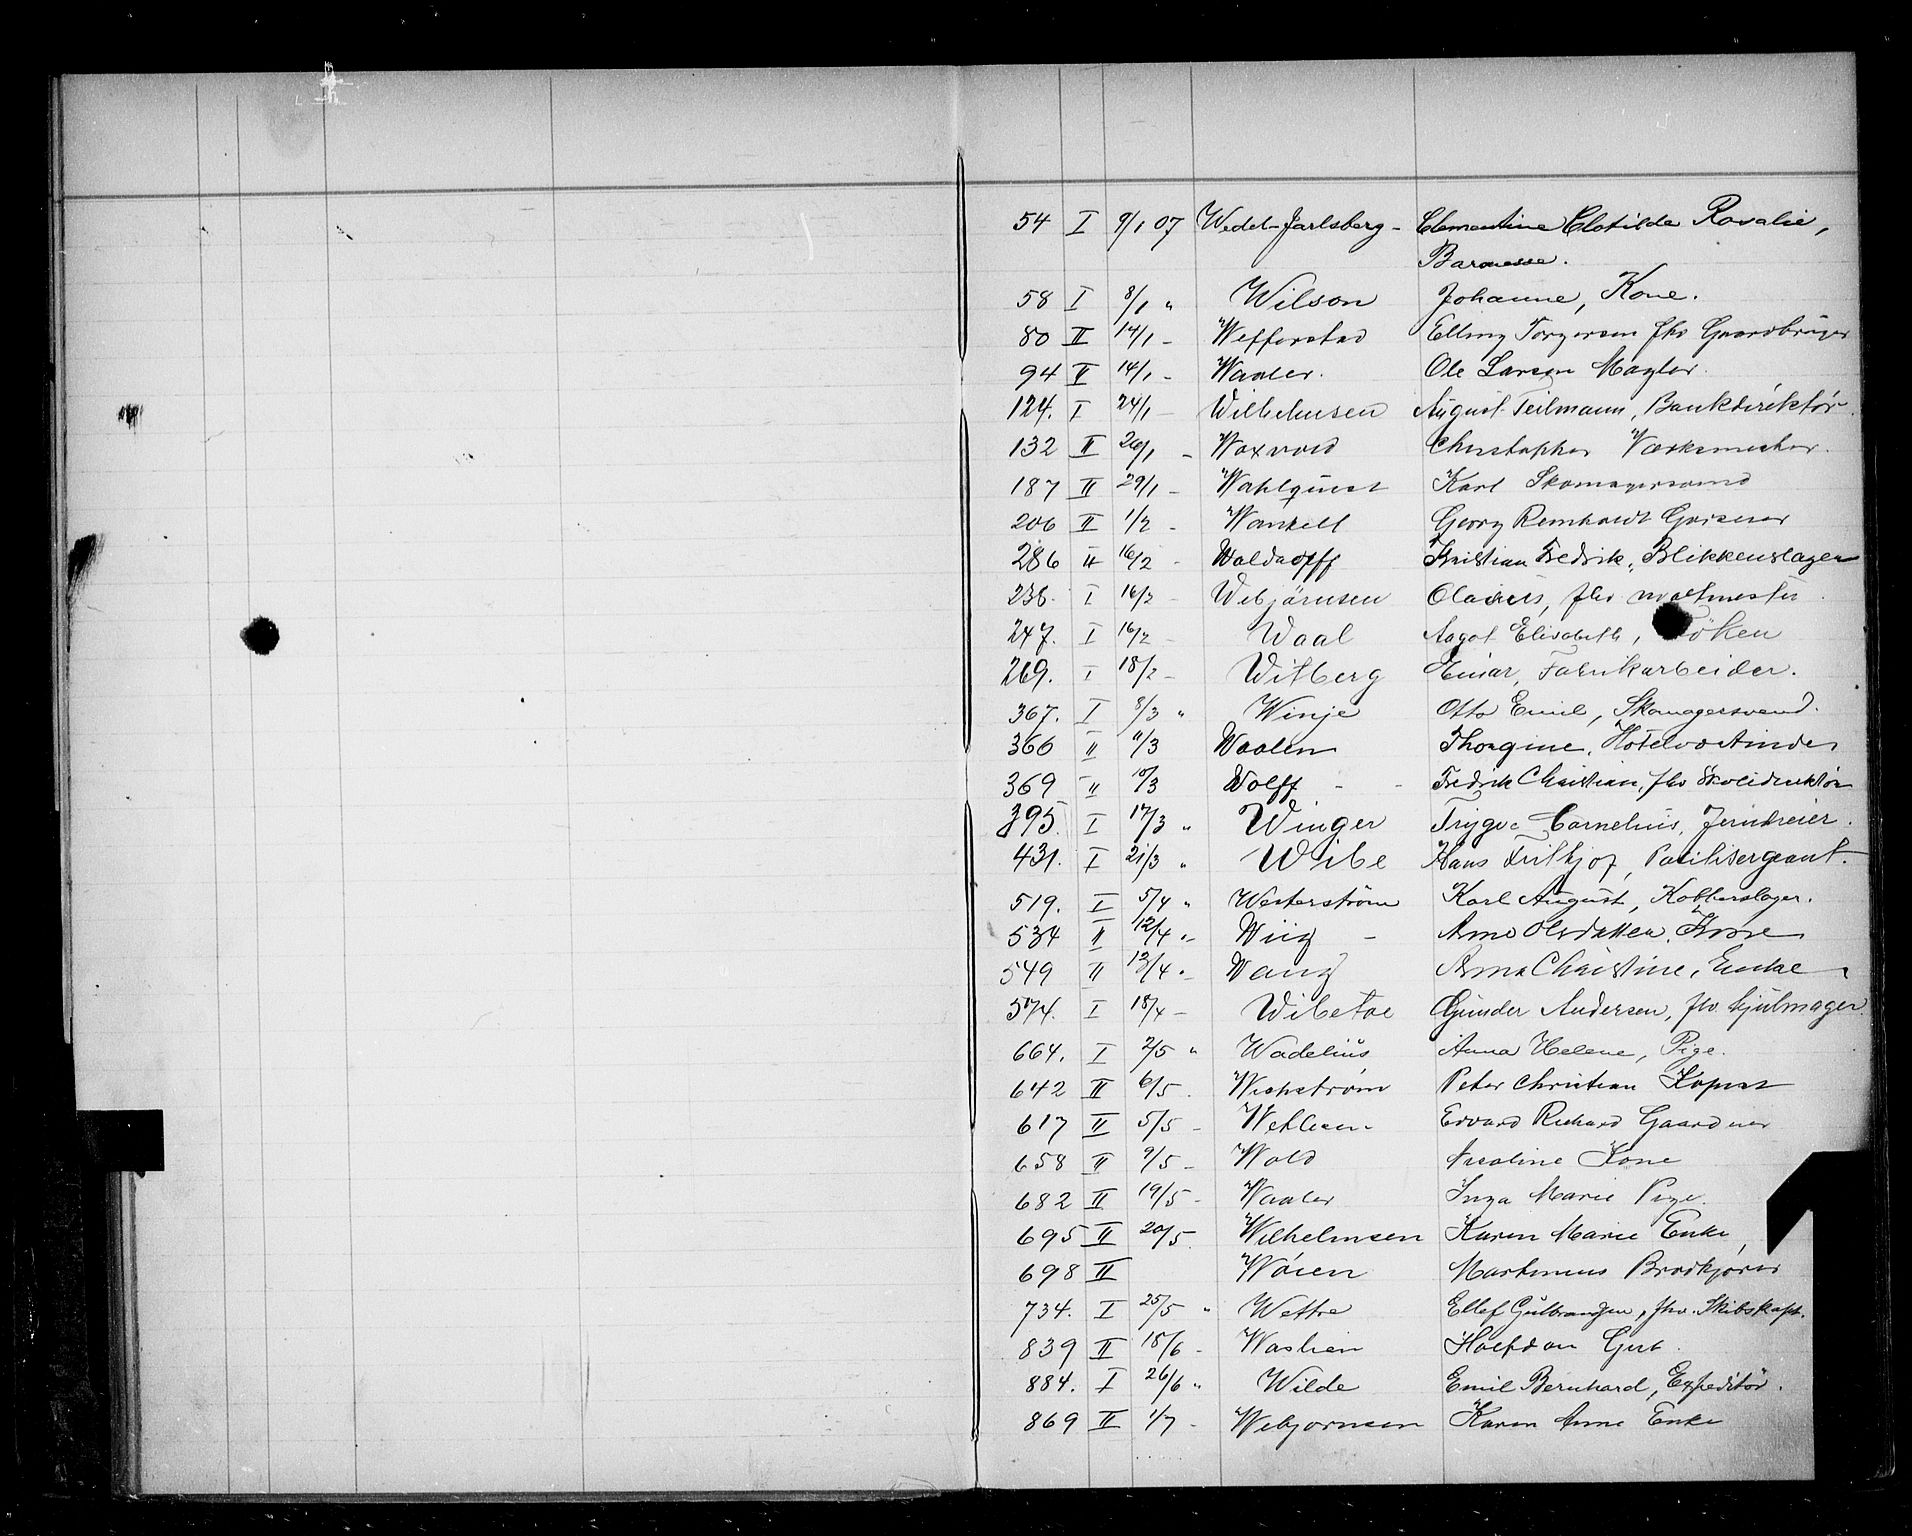 54 I 9/1 07 Wedel-Jarlsberg - Clementine Clotilde Rosalie,
Baronesse.
58 I 8/1 " Wilson Johanne, Kone.
80 II 14/1 - Wefferstad Elling Torgersen fhv Gaardbruger
94 II 14/1 - Waaler. Ole Larsen Mægler.
124. I 24/1 - Wilhelmsen August Teilmann, Bankdirektør.
132 II 26/1 - Woxvold Christopher Værksmester.
187 II 29/1 - Wahlquist Karl Skomagersvend
206 II 1/2 - Wankell Georg Reinhardt Garsener
286 II 16/2 - Woldroff Kristian Fredrik, Blikkenslager
238. I 16/2 - Webjörnsen Olavus, fhv
247. I 16/2 - Waal Aagot Elisabeth, Frøken
269. I 18/2 - Witberg Einar, Fabrikarbeider.
367. I 8/3 " Winje Otto Emil, Skomagersvend.
366 II 11/3 Waalen Thorgine, Hotelværtinde
369 II 10/3 Wolff - - Fredrik Christian, fhv Skoledirektør
395. I 17/3 " Winger Trygve Cornelius, Jerndreier.
431. I 21/3 " Wibe Hans Fritkjof, Politisergeant.
519. I 5/4 " Westerstrøm Karl August, Kobberslager.
534 II 12/4 "- Wiig - Anne Olsdatter, Kone
549 II 13/4 "- Wang Anna Christine, Enke
574. I 18/4 - Wibetoe Gunder Andersen, fhv. hjulmager.
664. I 2/5 " Wadelius Anna Helene, Pige.
642 II 6/5. Wickstrøm Peter Christian Kopist
617 II 5/5 - Wethean- Edvard Richard Gaardner
658 II 9/5 - Wold Nicoline Kone
682 II 19/5 - Waaler Inga Marie Pige.
695 II 20/5. Wilhelmsen Karen Marie Enke,
698 II Wøien Martinius Brødkjører
734. I 25/5 " Wettre Ellef Gulbrandsen, fhv. Skibskapt.
839 II 15/6 - Waslien Halfdan Gut.
884. I 26/6 " Wilde Emil Bernhard, Expeditør.
869 II 1/7 - Webjornsen Karen Anne Enke